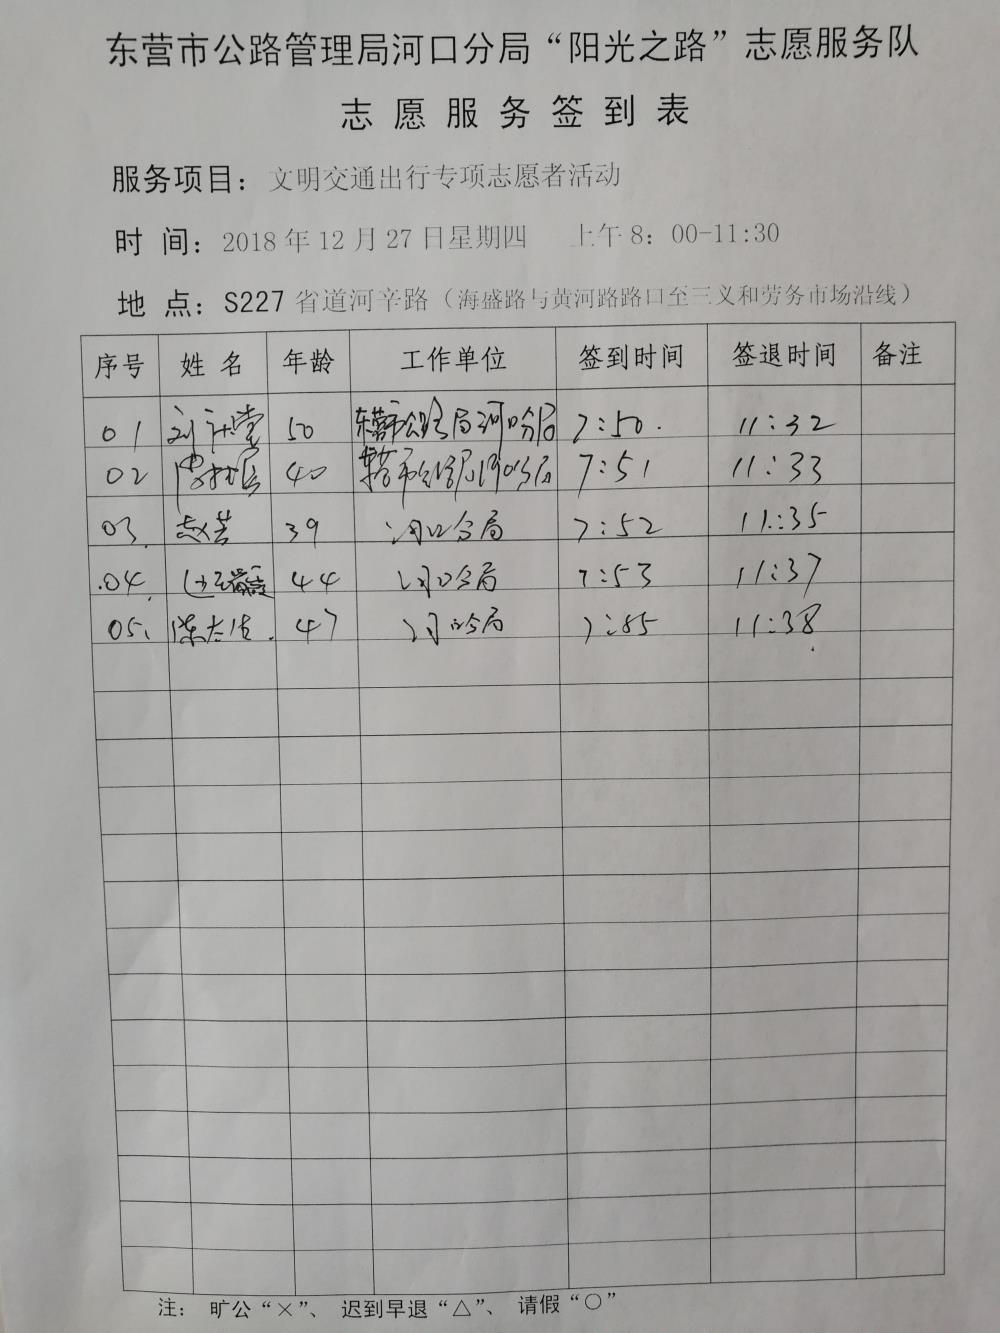 东营市公路管理局河口分局“阳光之路”志愿服务队
志愿服务签到表
服务项目：文明交通出行专项志愿者活动
时 间：2018年12月27日星期四 上午8：00-11:30
地 点：S227省道河辛路（海盛路与黄河路路口至三义和劳务市场沿线）
序号 姓名 年龄 工作单位 签到时间 签退时间 备注
01 50 东营市公路局河口分局 7:50. 11:32
02 40 河口分局 7:51 11:33
03. 赵芸 39 河口分局 7:52 11:35
.04. 44 河口分局 7:53 11:37
05. 47 河口分局 7:55 11:38
注： 旷公“×”、 迟到早退“△”、 请假“○”